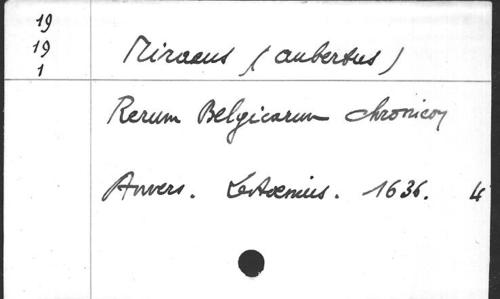 19
19
1
Miraeus (aubertus)
Rerum Belgicarum chronicon
Anvers. Lestaenius. 1636. 4